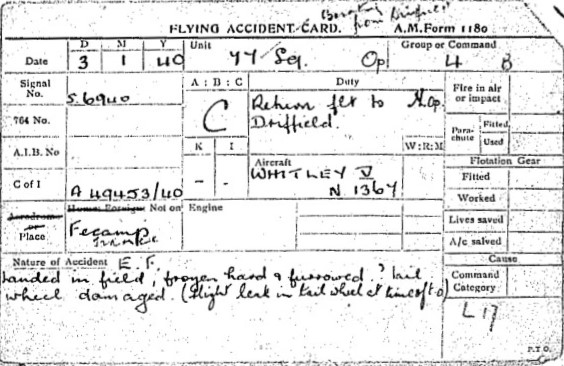 Operating
from Driffield
FLYING ACCIDENT CARD. A.M. Form 1180
D M Y Unit Group or Command
Date 3 1 40 77 Sq. Op 4 B
Signal No. S.6940 A : B : C Duty Fire in air or impact
C Return flt to N.Op.
704 No. Driffield. Para-chute Fitted
Used
A.I.B. No K I W:R:M
Aircraft Flotation Gear
C of I A 49453/40 - - WHITLEY V Fitted
N. 1367 Worked
Aerodrome or Place Home: Foreign: Not on Engine
Fecamp Lives saved
France A/c salved
Nature of Accident E.F. Cause
Landed in field, frozen hard & furrowed. Tail Command Category
wheel damaged. (Slight leak in tail wheel at time of t.o)
L 17
P.T.O.